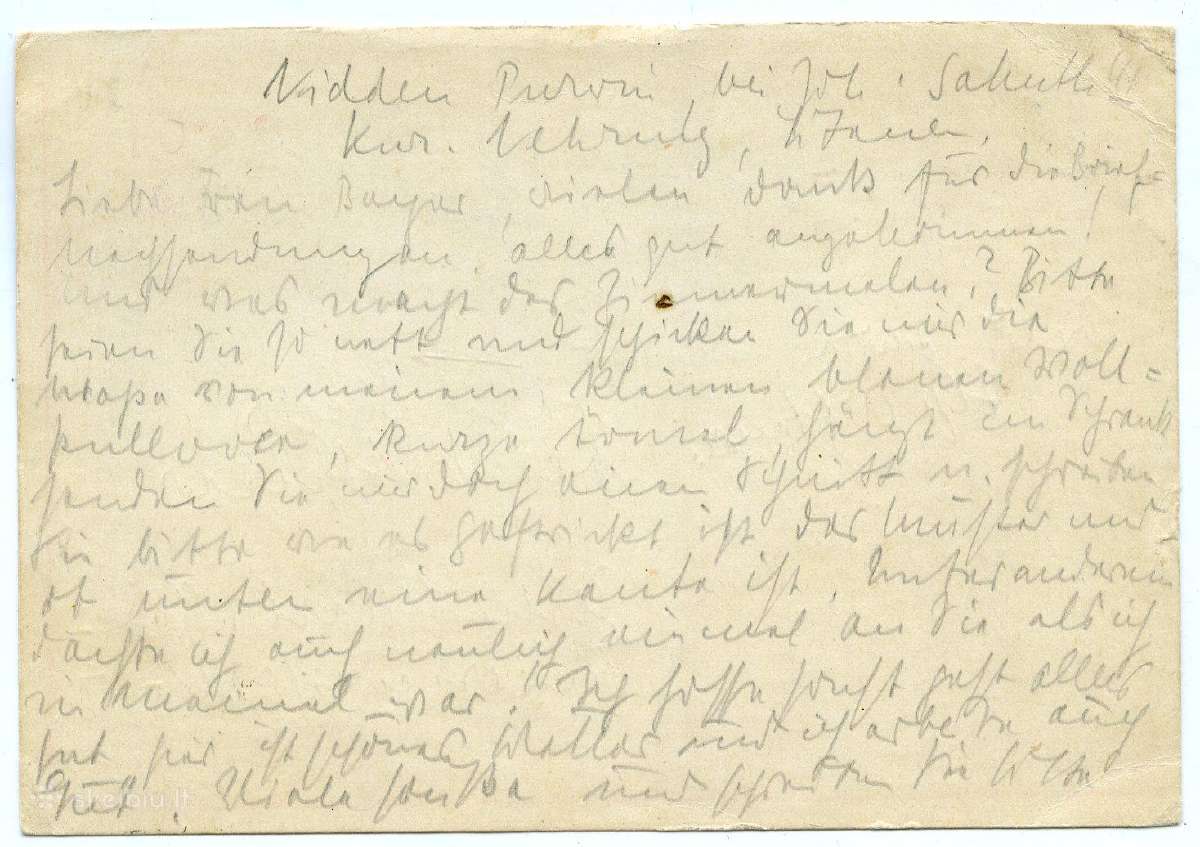 Nidden Purwin, bei Joh. Sakuth
Kur. Nehrung, Litauen.
Liebe Frau Bayer, vielen Dank für die Brief-
nachsendungen, alles gut angekommen!
Und was macht das Zimmermalen? Bitte
seien Sie so nett und schicken Sie mir die
Maße von meinem kleinen blauen Woll=
pullover, kurze Ärmel, hängt im Schrank
senden Sie mir doch einen Schnitt u. schreiben
Sie bitte wie es gestrickt ist das Muster und
ob unten eine Kante ist. Unter anderem
dachte ich auch neulich einmal an Sie als ich
in Memel war! Ich hoffe sonst geht alles
gut hier ist schönes Wetter und ich arbeite auch
gut. Viele Grüße und schreiben Sie bitte
skelbiu.lt